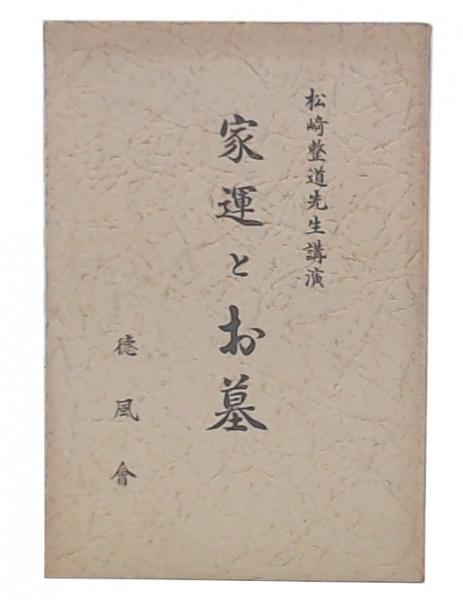 松﨑整道先生講演
家運とお墓
徳風會